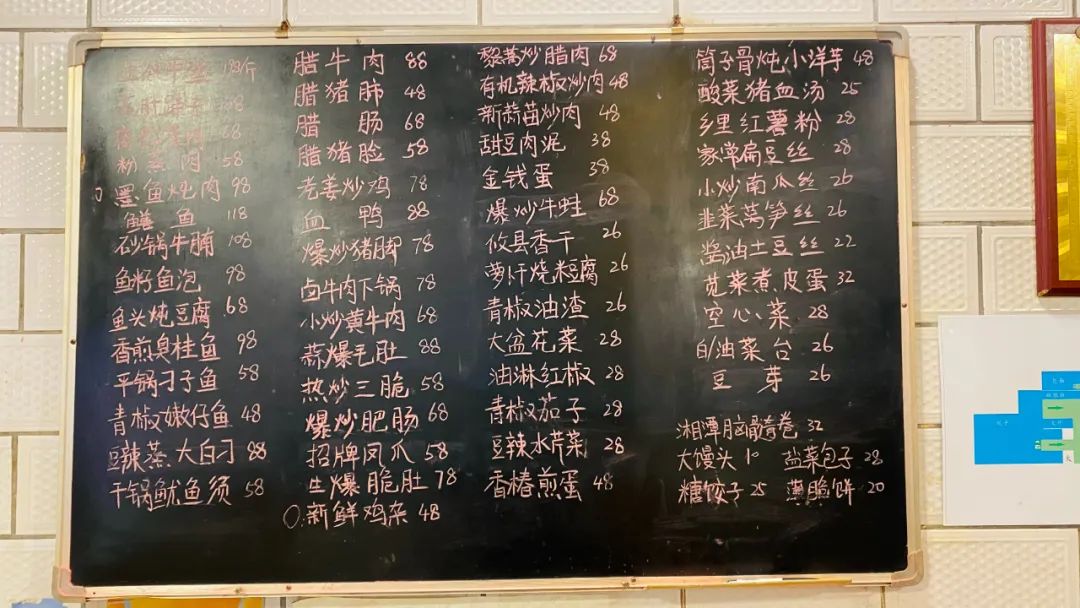 183/斤
68
粉蒸肉 58
墨鱼炖肉 98
鳝鱼 118
砂锅牛腩 108
鱼籽鱼泡 98
鱼头炖豆腐 68
香煎臭桂鱼 98
干锅刁子鱼 58
青椒嫩仔鱼 48
豆辣蒸大白刁 88
干锅鱿鱼须 58
腊牛肉 88
腊猪肺 48
腊肠 68
腊猪脸 58
老姜炒鸡 78
血鸭 88
爆炒猪脚 78
卤牛肉下锅 78
小炒黄牛肉 68
蒜爆毛肚 88
热炒三脆 58
爆炒肥肠 68
招牌凤爪 58
生爆脆肚 78
新鲜鸡杂 48
黎蒿炒腊肉 68
有机辣椒炒肉 48
新蒜苗炒肉 48
甜豆肉泥 38
金钱蛋 38
爆炒牛蛙 68
攸县香干 26
萝卜烧米豆腐 26
青椒油渣 26
大盆花菜 28
油淋红椒 28
青椒茄子 28
豆辣水芹菜 28
香椿煎蛋 48
筒子骨炖小洋芋 48
酸菜猪血汤 25
乡里红薯粉 28
家常扁豆丝 28
小炒南瓜丝 26
韭菜莴笋丝 26
酱油土豆丝 22
苋菜煮皮蛋 32
空心菜 28
白/油菜台 26
豆芽 26
湘潭脑髓卷 32
大馒头 10 盐菜包子 28
糖饺子 25 薄脆饼 20